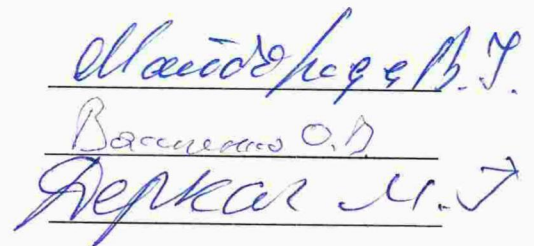 Майборода В. Г.
Василенко О.В.
Деркач М. Г